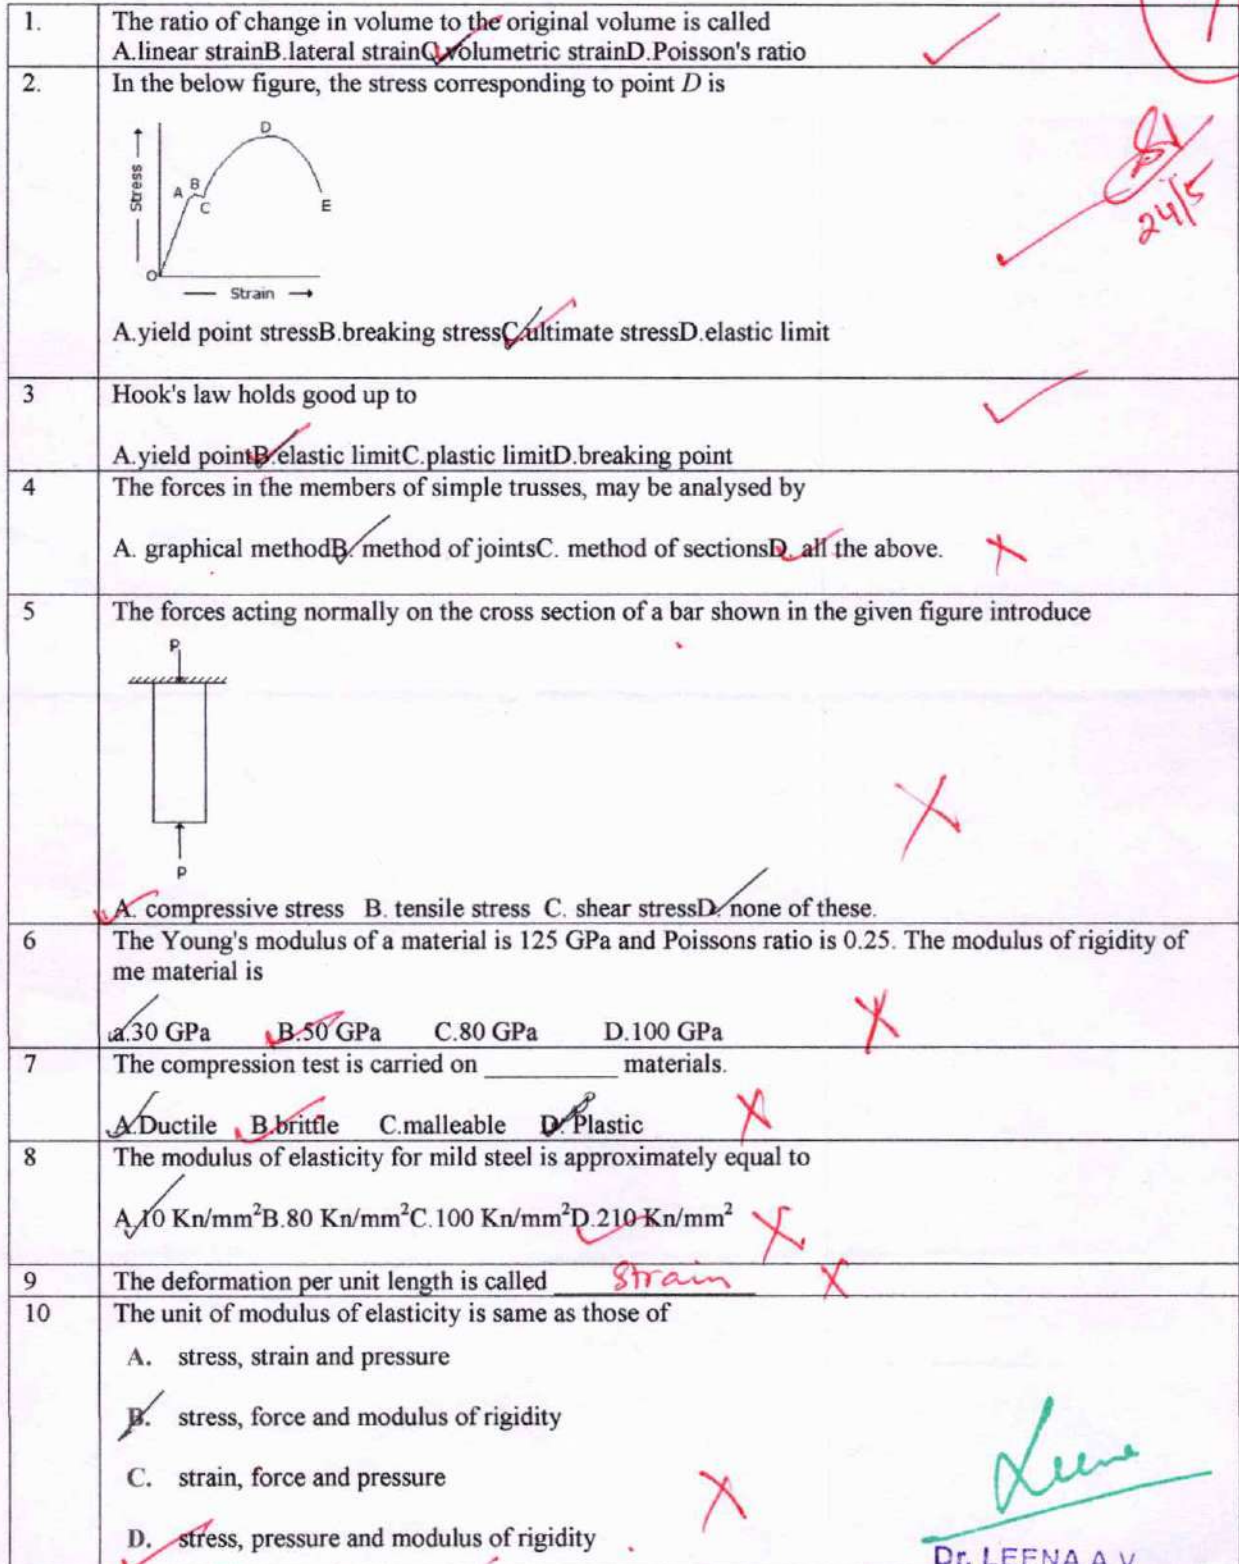 1. The ratio of change in volume to the original volume is called
A.linear strainB.lateral strainC.volumetric strainD.Poisson's ratio
2. In the below figure, the stress corresponding to point D is
24/5
Stress
A
B
C
D
E
O
Strain
A.yield point stressB.breaking stressC.ultimate stressD.elastic limit
3 Hook's law holds good up to
A.yield pointB.elastic limitC.plastic limitD.breaking point
4 The forces in the members of simple trusses, may be analysed by
A. graphical methodB. method of jointsC. method of sectionsD. all the above.
5 The forces acting normally on the cross section of a bar shown in the given figure introduce
P
P
A. compressive stress B. tensile stress C. shear stressD. none of these.
6 The Young's modulus of a material is 125 GPa and Poissons ratio is 0.25. The modulus of rigidity of
me material is
a.30 GPa B.50 GPa C.80 GPa D.100 GPa
7 The compression test is carried on __________ materials.
A.Ductile B.brittle C.malleable D. Plastic
8 The modulus of elasticity for mild steel is approximately equal to
A.10 Kn/mm²B.80 Kn/mm²C.100 Kn/mm²D.210 Kn/mm²
9 The deformation per unit length is called Strain
10 The unit of modulus of elasticity is same as those of
A. stress, strain and pressure
B. stress, force and modulus of rigidity
C. strain, force and pressure
D. stress, pressure and modulus of rigidity
Leena
Dr. LEENA A.V.